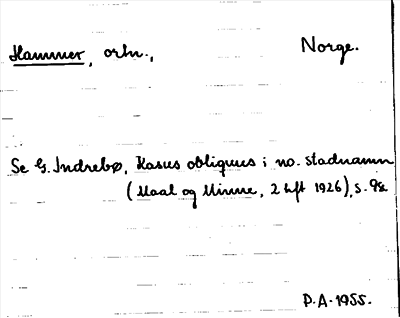 Hammer, ortn., Norge.
Se G. Indrebø, Kasus obliquus i no. stadnamn
(Maal og Minne, 2 hft 1926), s.
P.A. 1955.